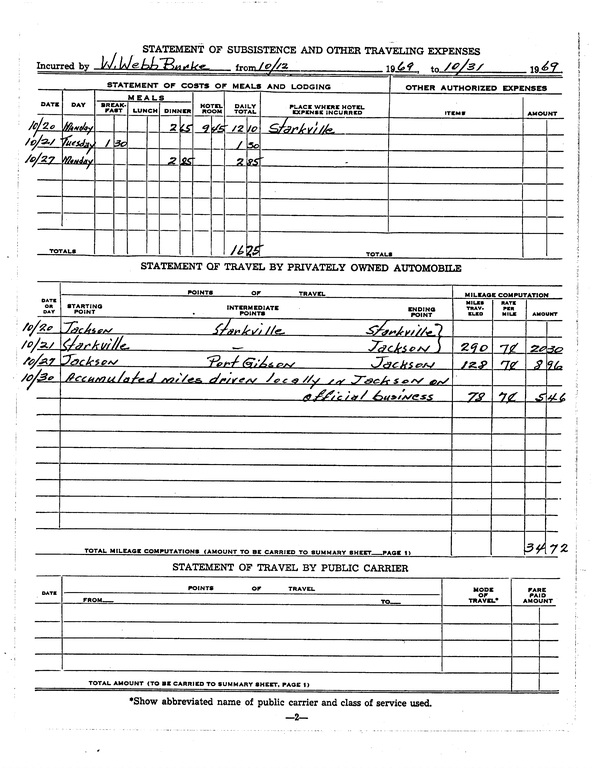 STATEMENT OF SUBSISTENCE AND OTHER TRAVELING EXPENSES
Incurred by W. Webb Burke from 10/12 1969, to 10/31 1969
STATEMENT OF COSTS OF MEALS AND LODGING OTHER AUTHORIZED EXPENSES
DATE DAY MEALS BREAK-FAST LUNCH DINNER HOTEL ROOM DAILY TOTAL PLACE WHERE HOTEL EXPENSE INCURRED ITEMS AMOUNT
10/20 Monday 2 65 9 45 12 10 Starkville
10/21 Tuesday 1 30 1 30
10/27 Monday 2 85 2 85
TOTALS 16 25 TOTALS
STATEMENT OF TRAVEL BY PRIVATELY OWNED AUTOMOBILE
DATE OR DAY POINTS OF TRAVEL MILEAGE COMPUTATION
STARTING POINT INTERMEDIATE POINTS ENDING POINT MILES TRAV-ELED RATE PER MILE AMOUNT
10/20 Jackson Starkville Starkville }
10/21 Starkville - Jackson } 290 7¢ 20 30
10/27 Jackson Port Gibson Jackson 128 7¢ 8 96
10/30 Accumulated miles driven locally in Jackson on
official business 78 7¢ 5 46
TOTAL MILEAGE COMPUTATIONS (AMOUNT TO BE CARRIED TO SUMMARY SHEET—PAGE 1) 34 72
STATEMENT OF TRAVEL BY PUBLIC CARRIER
DATE POINTS OF TRAVEL MODE OF TRAVEL* FARE PAID AMOUNT
FROM— TO—
TOTAL AMOUNT (TO BE CARRIED TO SUMMARY SHEET, PAGE 1)
*Show abbreviated name of public carrier and class of service used.
—2—